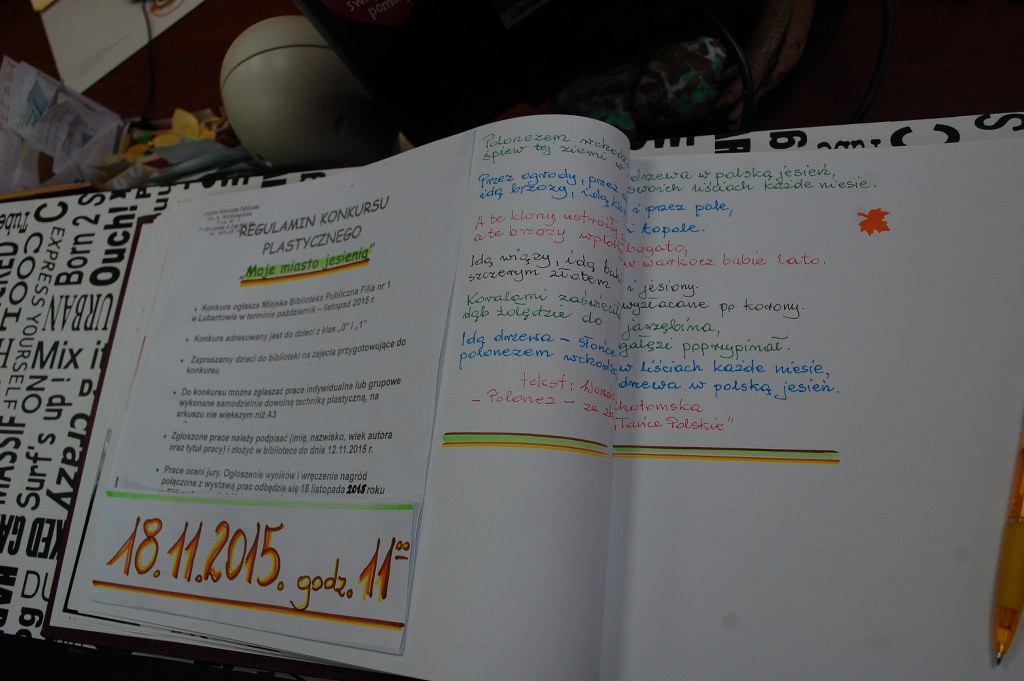 REGULAMIN KONKURSU
PLASTYCZNEGO
„Moje miasto jesienią”
• Konkurs ogłasza Miejska Biblioteka Publiczna Filia nr 1
w Lubartowie w terminie październik – listopad 2015 r.
• Konkurs adresowany jest do dzieci z klas „0” i „1”
• Zapraszamy dzieci do biblioteki na zajęcia przygotowujące do
konkursu
• Do konkursu można zgłaszać prace indywidualne lub grupowe
wykonane samodzielnie dowolną techniką plastyczną, na
arkuszu nie większym niż A3
• Zgłoszone prace należy podpisać (imię, nazwisko, wiek autora
oraz tytuł pracy) i złożyć w bibliotece do dnia 12.11.2015 r.
• Prace oceni jury. Ogłoszenie wyników i wręczenie nagród
połączone z wystawą prac odbędzie się 18 listopada 2015 roku
18.11.2015. godz. 11⁰⁰
Polonezem wchodzą drzewa w polską jesień,
śpiew tej ziemi w swoich liściach każde niesie.
Przez ogrody, przez i przez pole,
idą brzozy, idą i topole.
A te klony ustroiły bogato,
a te brzozy wplotły w warkocz babie lato.
Idą wiązy, idą buki i jesiony.
szczerym złotem wyzłacane po korony.
Koralami zabłysnęła jarzębina,
dąb żołędzie do gałęzi poprzypinał.
Idą drzewa – słońce w liściach każde niesie,
polonezem wchodzą drzewa w polską jesień.
tekst: Wanda Chotomska
– Polonez – ze „Tańce Polskie”
Tube
COOL
EXPRESS YOURSELF
Born 2 S
Ouch!
URBAN
Mix it
NO
Surf's
crazy
MASSIF